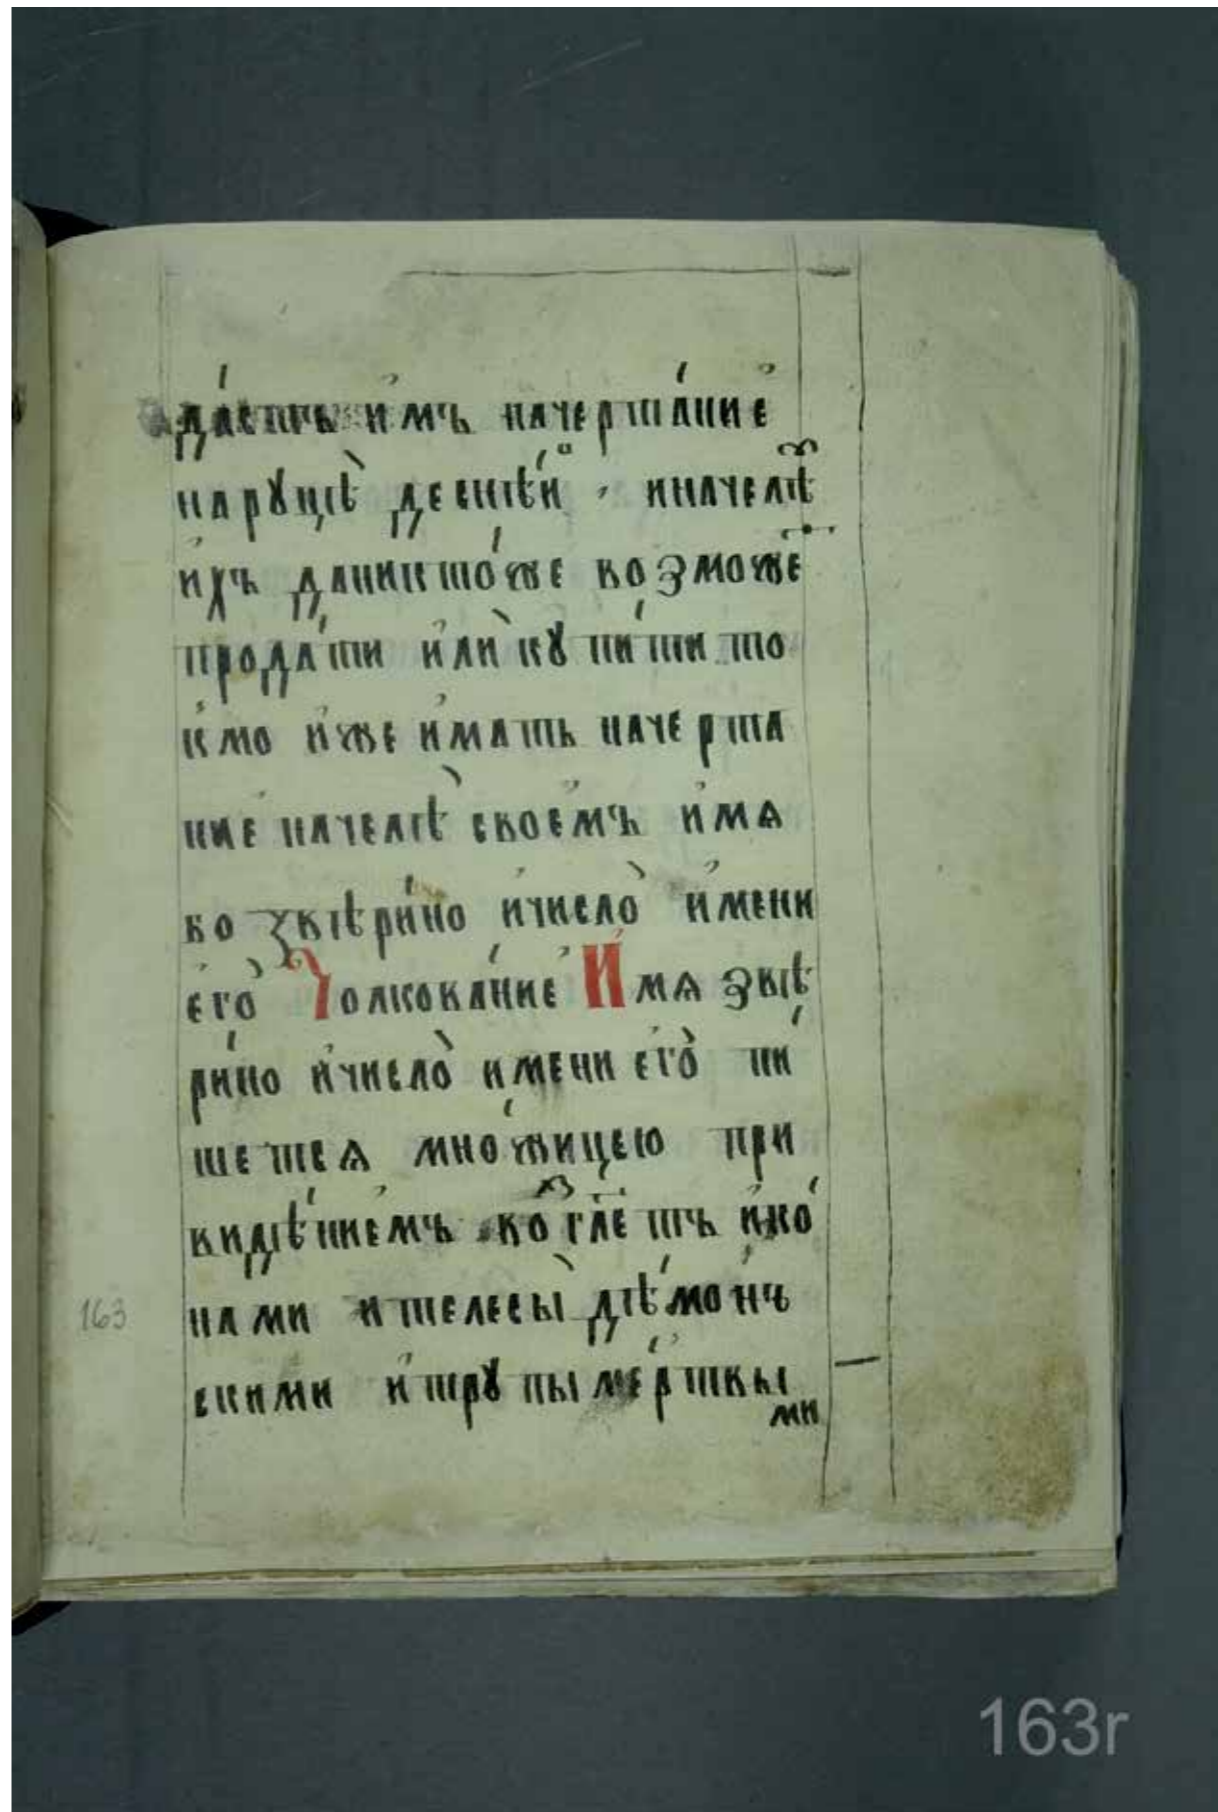 да́стъ и҆мъ начерта́нїе
нарꙋцѣ̀ деснѣ́й , иначелѣ̑
и҆хъ данikто́же возмо́же
прода́ти и҆лѝ кꙋпи́ти то
кмо и҆же и҆мать начерта
ние начелѣ̀ своемъ и҆мѧ
во звѣри́но и҆число̀ и҆мени
е҆го̀ Толкова́нїе И҆мѧ звѣ
ри́но и҆число̀ и҆мени е҆го̀ пи́
шетсѧ мно́жицею при
видѣ́ниемъ ко гл҃етъ и҆ко́
нами ителесы̀ дѣ́мо́нъ
скими и҆трꙋпы ме́ртвы
ми
163
163r